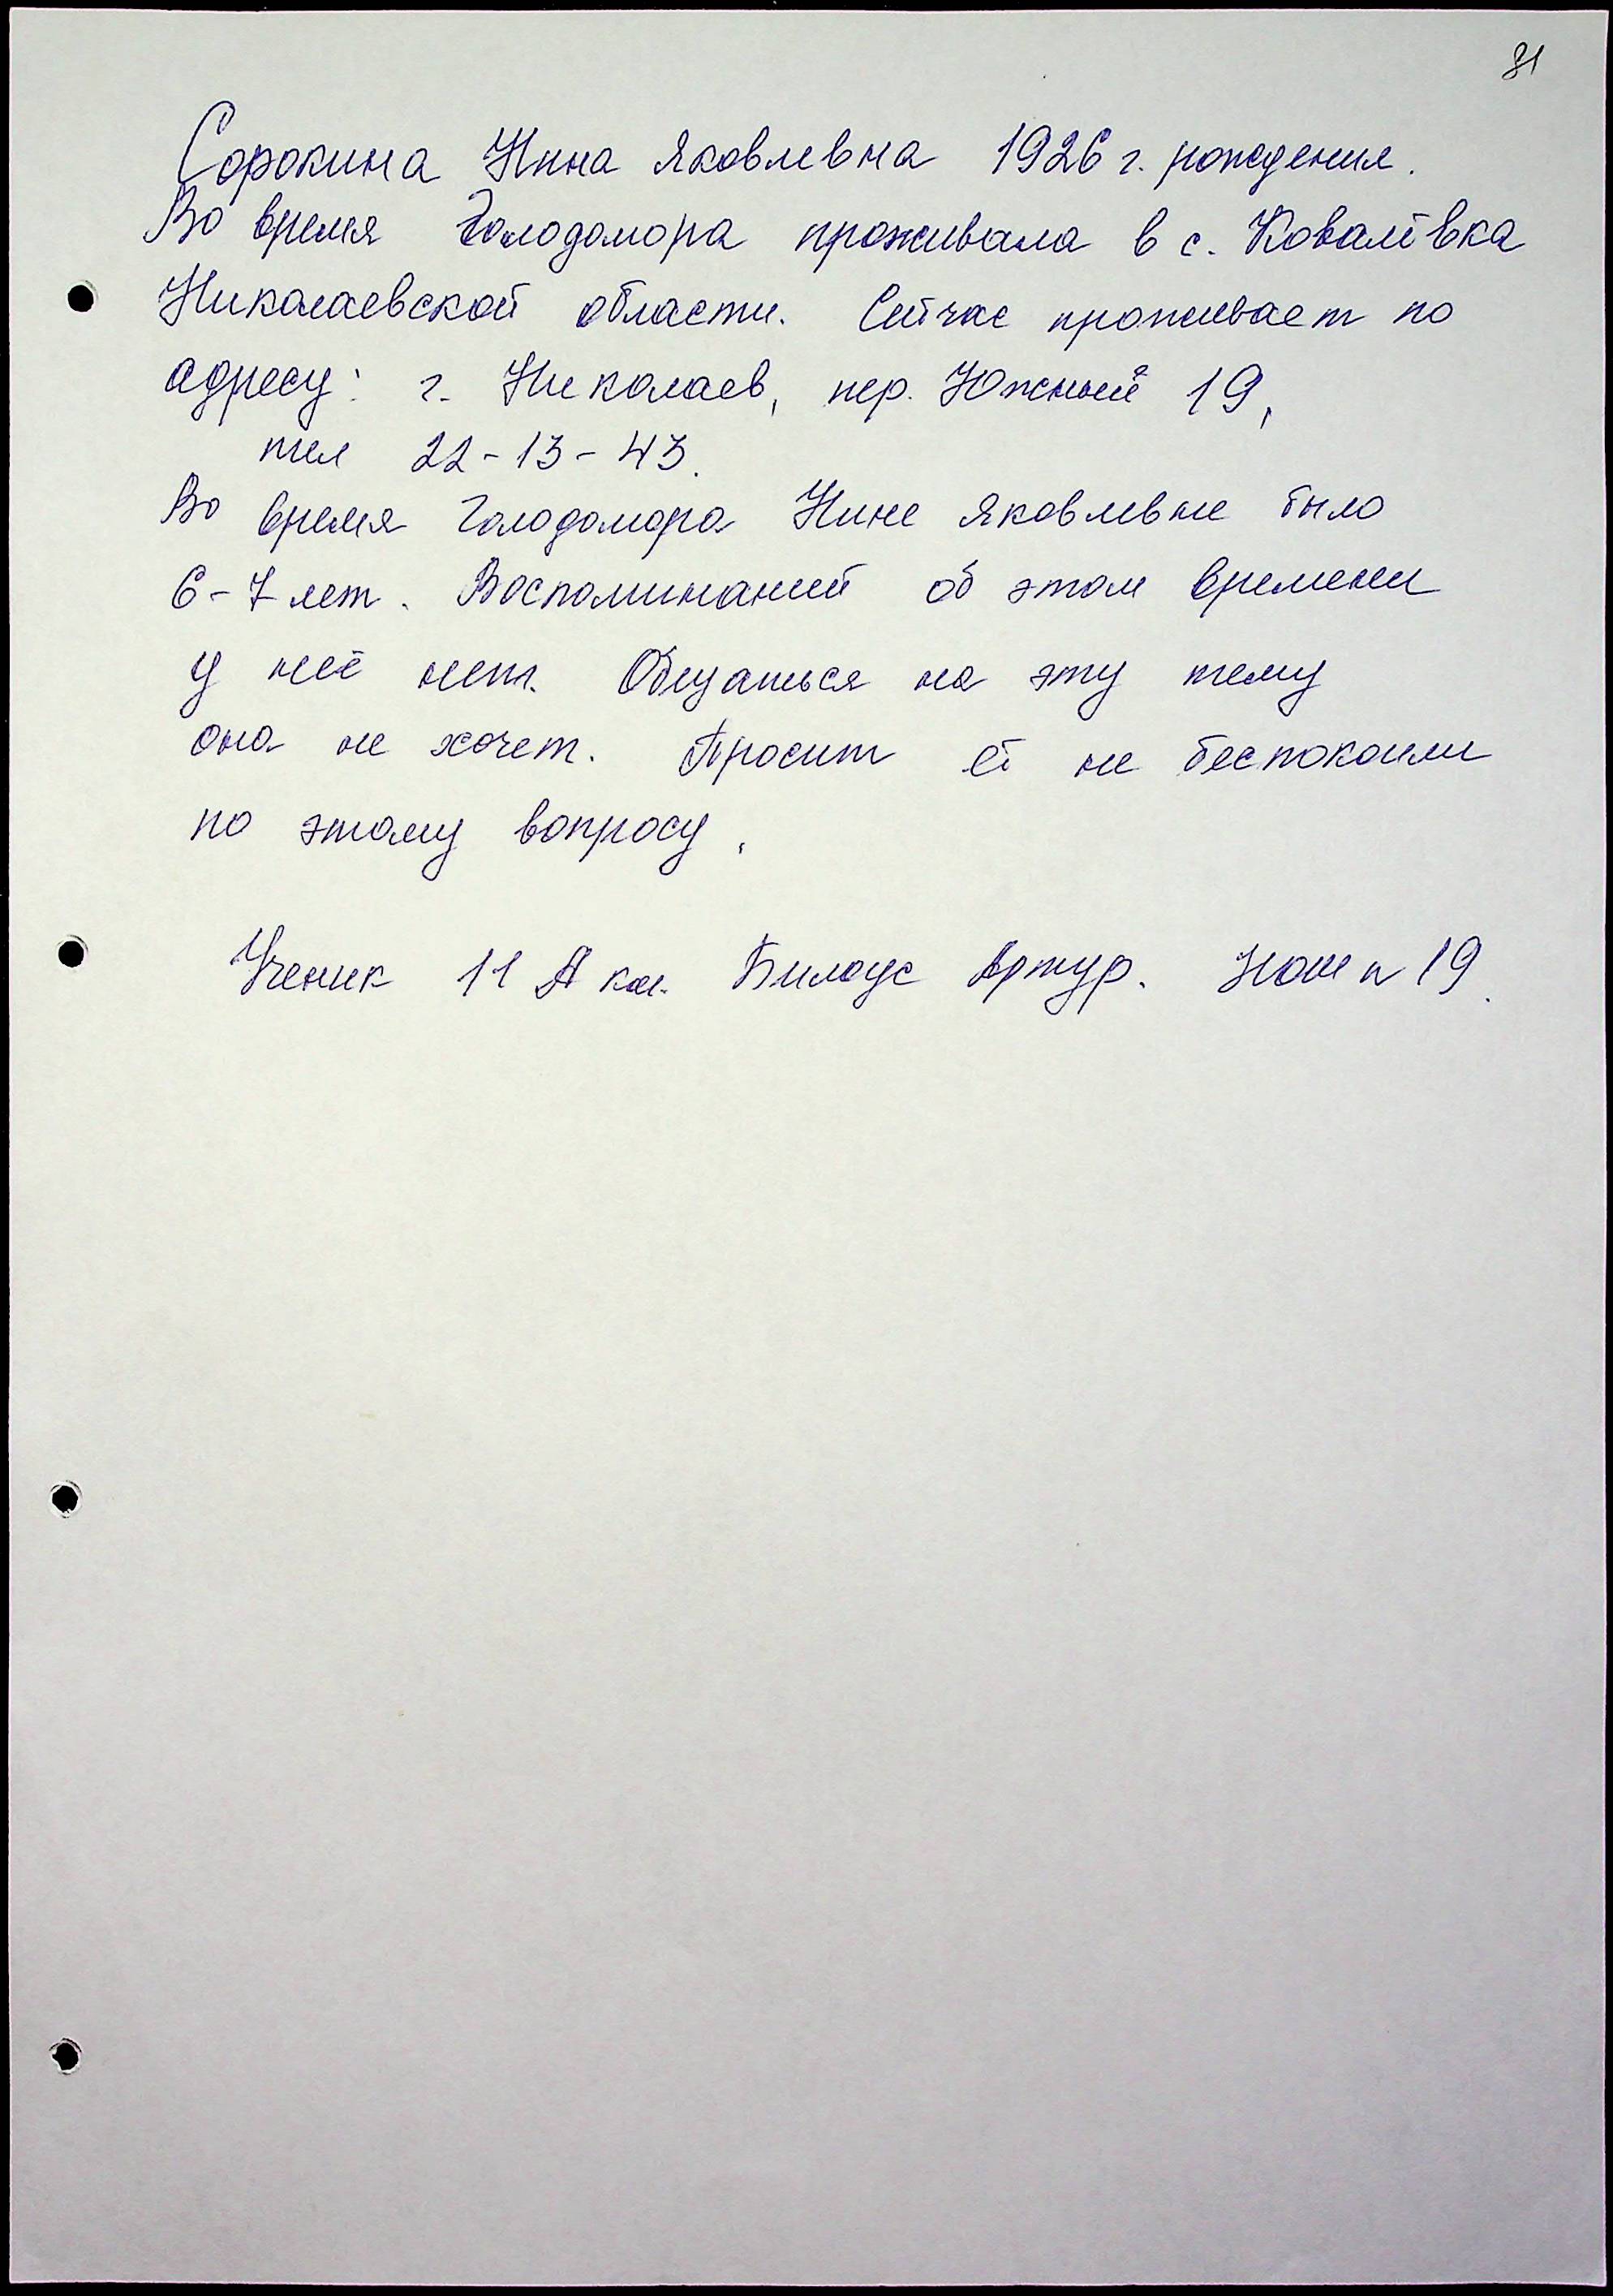 81
Сорокина Нина Яковлевна 1926 г. рождения.
Во время Голодомора проживала в с. Ковалёвка
Николаевской области. Сейчас проживает по
адресу: г. Николаев, пер. Южный 19,
тел 22-13-43.
Во время Голодомора Нине Яковлевне было
6-7 лет. Воспоминаний об этом времени
у неё нет. Общаться на эту тему
она не хочет. Просит её не беспокоили
по этому вопросу.
Ученик 11 А кл. Билоус Артур. 19.